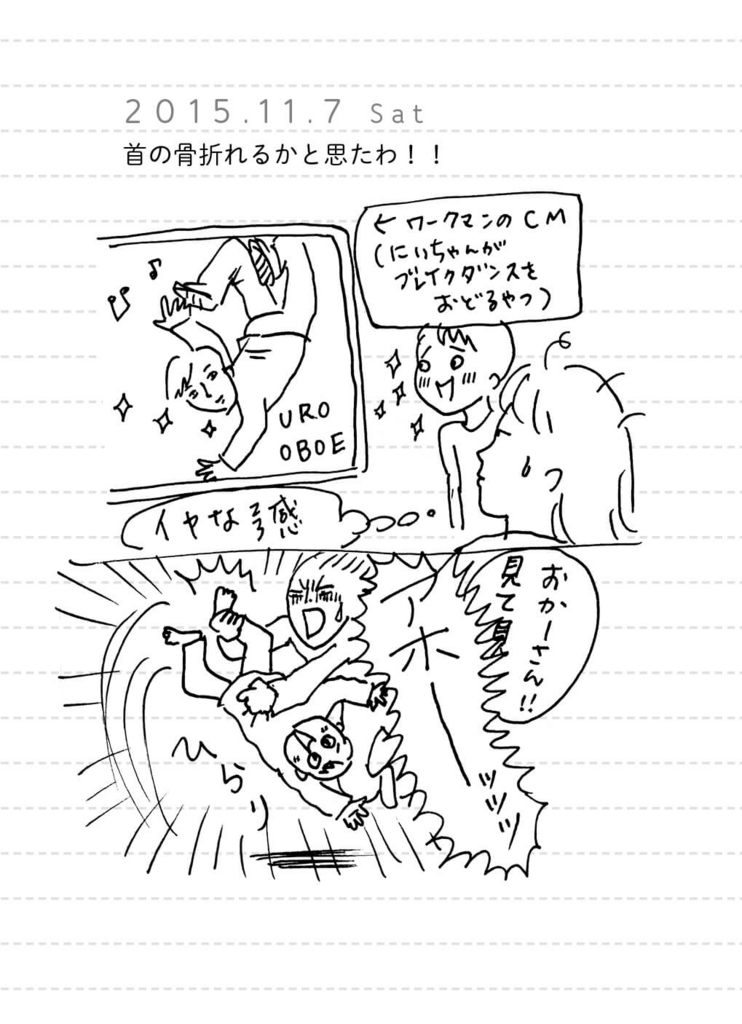 2015.11.7 Sat
首の骨折れるかと思たわ！！
← ワークマンのCM
(にいちゃんが
ブレイクダンスを
おどるやつ)
URO
OBOE
イヤな予感
おかーさん!!
見て見
アホーッッッ
ひらり